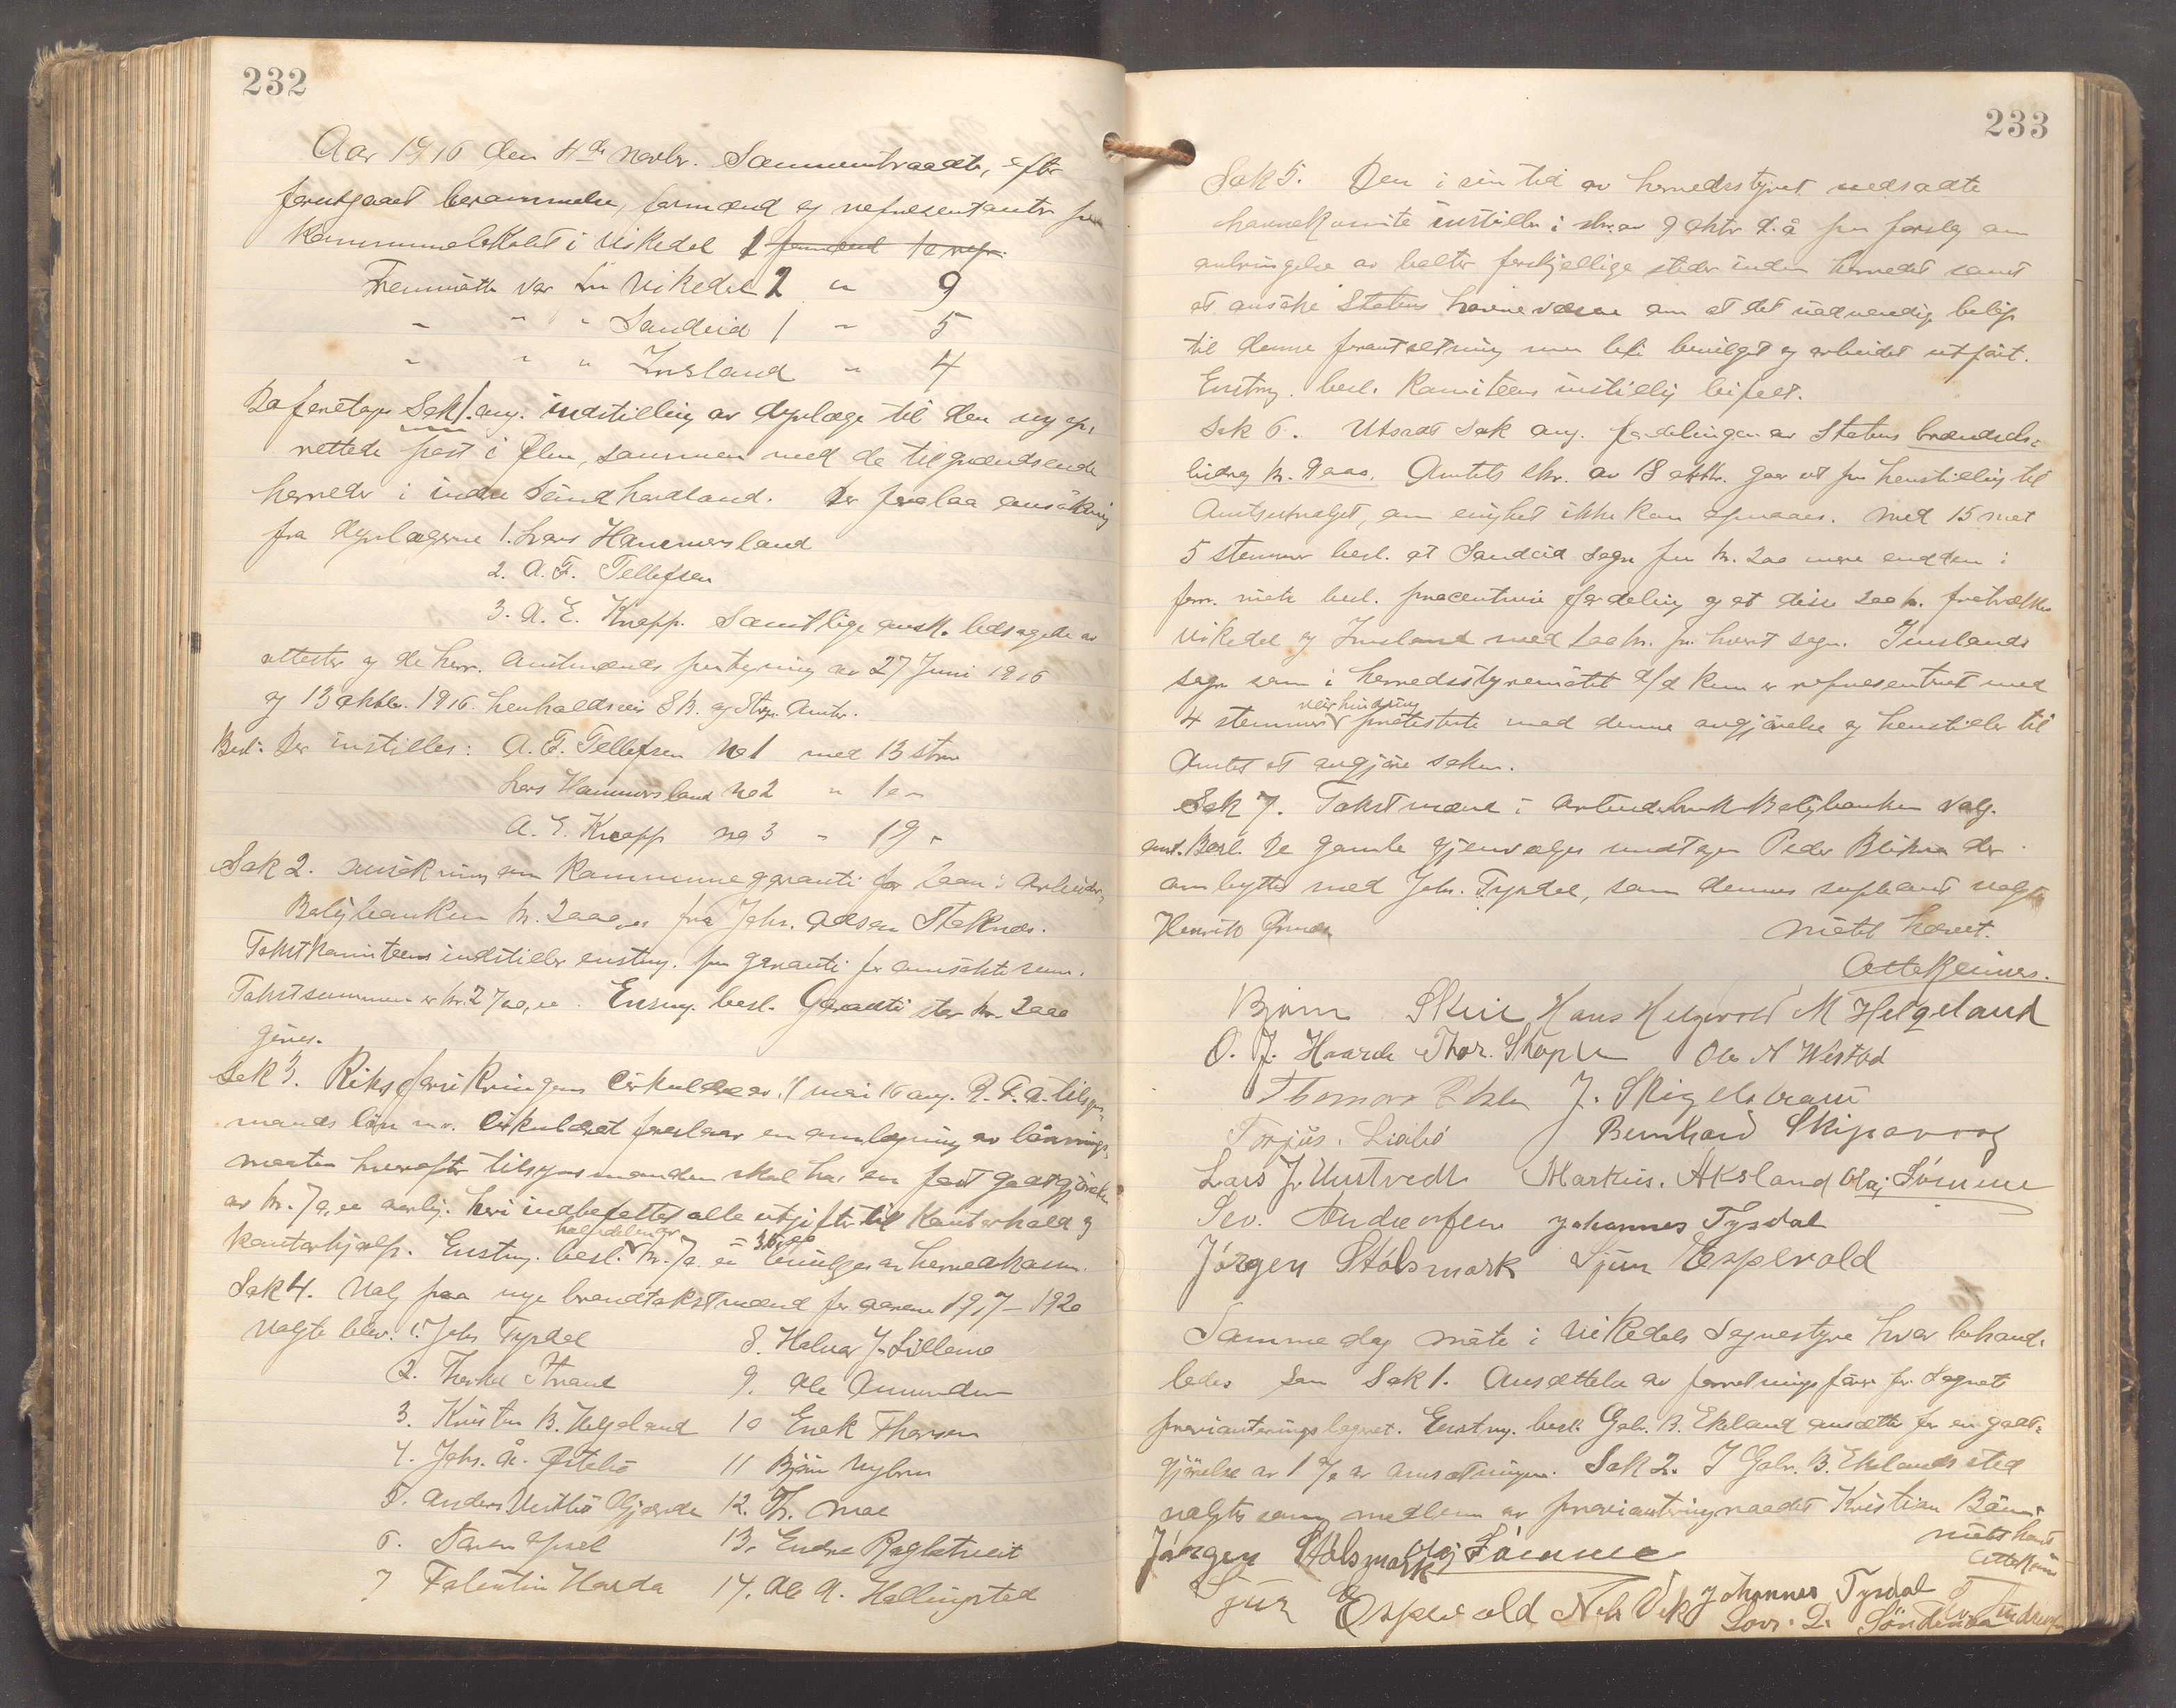 232
Aar 1916 den 4de novbr. Sammentraadte, efter
forutgaaet berammelse, formænd og repræsentanter paa
Kommunelokalet i Vikedal 1 formand 10 repr.
Fremmøtte var fra Vikedal 2 " 9
" " " Sandeid 1 " 5
" " " Imsland " 4
Da foretoges Sak 1. ang. indstilling av dyrlæge til den ny op-
rettede post i Ølen, sammen med de tilgrændsende
herreder i indre Søndhordland. Der forelaa ansøkning
fra dyrlægerne 1. Lars Hammersland
2. A. F. Tellefsen
3. A. E. Knapp. Samtlige ansøk. ledsagede av
attester og de herr. Amtmænds paategning av 27 Juni 1916
og 13 oktbr. 1916 henholdsvis S.B. og Stvgr. Amter.
Besl: Der instilles: A. F. Tellefsen No 1 med 13 stem
Lars Hammersland No 2 " 10 "
A. E. Knapp no 3 " 19 "
Sak 2. Ansøkning om Kommunegaranti for Laan i Arbeider-
Boligbanken kr. 2000,00 fra Johs. Stoknes.
Takstkomiteens indstiller enstm. paa garanti for ansøkte sum.
Takstsummen er kr. 2700,00. Enstm. besl. Garanti stor kr. 2000
gives.
Sak 3. Riksforsikringens Cirkulære av 11 mai 16 ang. R. F. A. tilsyns-
mænds løn m.v. Cirkulæret foreslaar en omlægning av lønnings-
maaten hvorefter tilsynsmanden skal ha en fast godtgjørelse
av kr. 70,00 aarlig. heri indbefattet alle utgifter til Kontorhold og
halvdelen av 35,00
kontorhjælp. Enstm. besl. kr. 70,00 bevilges av herredskassen.
Sak 4. Valg paa nye brandtakstmænd for aarene 1917–1920
Valgte blev. 1. Johs Tysdal
8. Halvar J. Lillemo
2. Thorkel Strand
9. Ole Amundsen
3. Kristen B. Helgeland
10 Enok Thorsen
4. Johs. A. Østebø
11 Bjørn Nybru
5. Anders Gjerde
12. Th. Moe
6. Søren Opsal
13. Endre Rogletveit
7 Falentin Harda
14. Ole A. Hellingstad
233
Sak 5. Den i sin tid av herredsstyret nedsatte
havnekomite instiller i skr. av 9 oktbr d.å paa forslag om
anbringelse av bolter forskjellige steder inden herredet samt
at ansøke Statens havnevæsen om at det nødvendige beløp
til denne foranstaltning maa bli bevilget og arbeidet utført.
Enstm. besl. Komiteens instilling bifalt.
Sak 6. Utsat Sak ang. fordelingen av Statens brændsels-
bidrag kr. 9000. Amtets skr. av 18 oktbr. gaar ut paa henstilling til
Amtsutvalget, om enighet ikke kan opnaaes. Med 15 mot
5 stemmer besl. at Sandeid Sogn faar kr. 200 mere end den i
forr. møte besl. procentvise fordeling og at disse 200 kr. fratrækkes
Vikedal og Imsland med 100 kr. for hvert sogn. Imslands
sogn som i herredsstyremøtet d/d kun er repræsentert med
4 stemmer protesterte mod denne avgjørelse og henstiller til
Amtet at avgjøre saken.
Sak 7. Takstmænd i Arbeiderbruk Boligbanken valg.
enst. Besl. De gamle gjenvælges undtagen Peder Bliksra der
ombyttes med Johs. Tysdal, som dennes suppleant valgtes
Henrik
Møtet hævet.
Otto Reimes.
Bjørn Skeie Hans Helgevold M Helgeland
O. J. Haarde Thor. Skople Ole N Westbø
Thomas J. Skigelstrand
Torjus. Liabø Bernhard Skipavaag
Lars J. Austvedt Markus. Aksland Olaj Sömme
Sev. Andersen Johannes Tysdal
Jörgen Stölsmark Sjur Espevold
Samme dag møte i Vikedals Sognestyre hvor behand-
ledes som Sak 1. Ansættelse av forretningsfører for Sognets
provianteringslagret. Enstm. besl. Gabr. B. Ekeland ansættes for en godt-
gjørelse av 1 % av omsætningen. Sak 2. I Gabr. B. Ekelands sted
valgtes som medlem av provianteringsraadet Kristian
møtet hævet
Otto Reimes
Jörgen Stölsmark Olaj Sömme
Sjur Espevold Nils Vik Johannes Tysdal
Lovr. L. Söndenaa Sev. Andersen